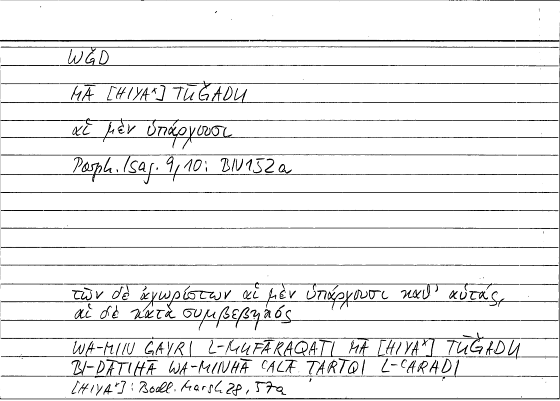 WĞD
MĀ [HIYAˣ] TŪĞADU
αἱ μὲν ὑπάρχουσι
Porph. Isag. 9,10: BN152a
τῶν δὲ ἀχωρίστων αἱ μὲν ὑπάρχουσι καθ' αὑτάς,
αἱ δὲ κατὰ συμβεβηκός
WA-MIN GAYRI L-MUFĀRAQATI MĀ [HIYAˣ] TŪĞADU
BI-DĀTIHĀ WA-MINHĀ ʿALĀ ṬARĪQI L-ʿARADI
[HIYAˣ]: Bodl. Marsh 28, 57a